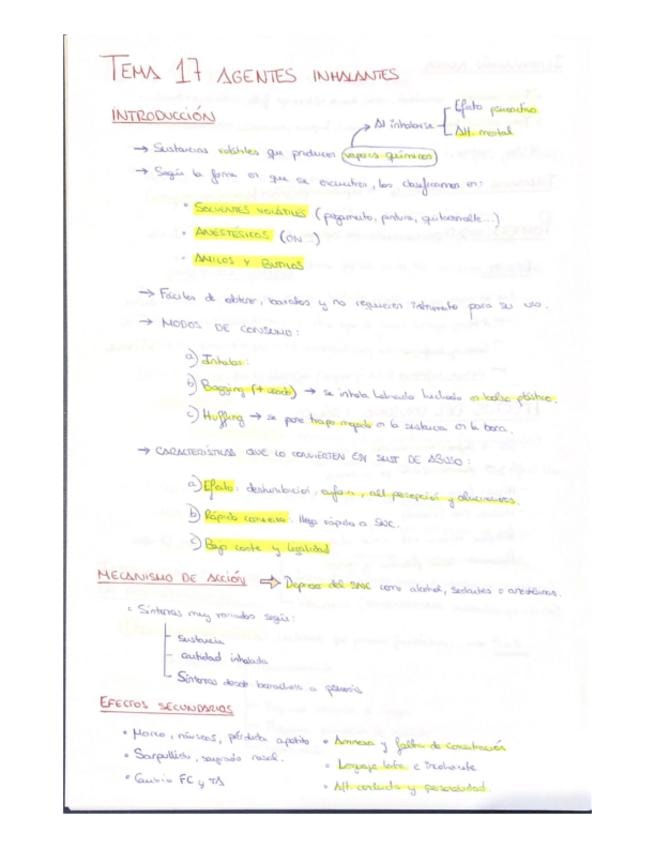 TEMA 17 AGENTES INHALANTES
INTRODUCCIÓN
→ Al inhalarse
Efecto psicoactivo
Alt. mental
→ Sustancias volátiles que producen vapores químicos
→ Según la forma en que se encuentren, las clasificamos en:
• SOLVENTES VOLÁTILES (pegamento, pintura, quitaesmalte...)
• ANESTÉSICOS (ON...)
• AMILOS Y BUTILOS
→ Fáciles de obtener, baratos y no requieren instrumento para su uso.
→ MODOS DE CONSUMO:
a) Inhalar:
b) Bagging (+ usado) → se inhala en bolsa plástico.
c) Huffing → se pone trapo mojado en la sustancia en la boca.
→ CARACTERÍSTICAS QUE LO CONVIERTEN EN SUST DE ABUSO:
a) Efecto: deshinibición, euforia, alt percepción y alucinaciones.
b) Rápido comienzo: llega rápido a SNC.
c) Bajo coste y legalidad
MECANISMO DE ACCIÓN ⇒ Depresor del SNC como alcohol, sedantes o anestésicos.
• Síntomas muy variados según:
- sustancia
- cantidad inhalada
Síntomas desde borrachera a psicosis
EFECTOS SECUNDARIOS
• Mareo, náuseas, pérdida apetito
• Sarpullido, sangrado nasal.
• Cambio FC y TA
• Amnesia y falta de concentración
• Lenguaje lento e incoherente
• Alt. conducta y personalidad.